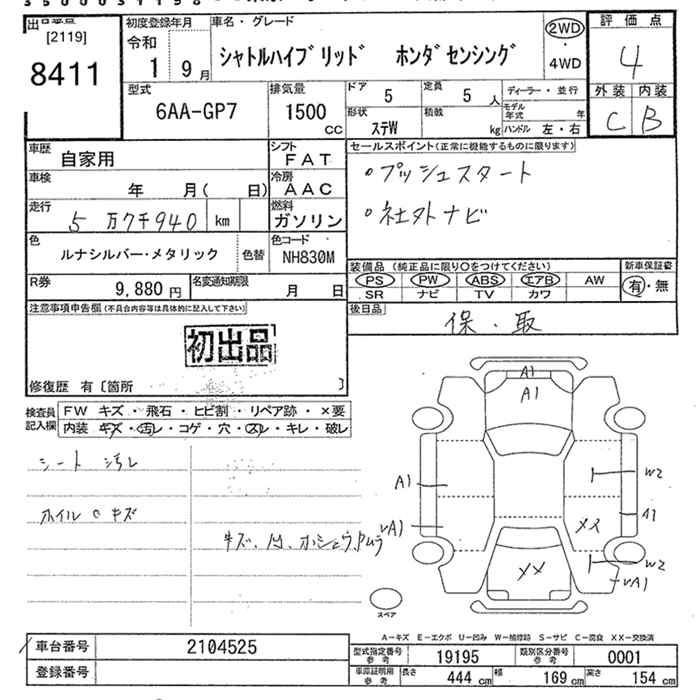 [2119]
8411
初度登録年月
令和
1 9月
車名・グレード
シャトルハイブリッド ホンダセンシング
2WD
・
4WD
評価点
4
外装 内装
C B
型式
6AA-GP7
排気量
1500
CC
ドア 5
定員 5 人
形状 ステW
積載 kg
ディーラー・並行
モデル年式 年
ハンドル 左・右
車歴 自家用
シフト FAT
車検 年 月( 日)
冷房 AAC
走行 5万7千940 km
燃料 ガソリン
色 ルナシルバー・メタリック
色替
色コード NH830M
R券 9,880円
名変通知期限 月 日
セールスポイント(正常に機能するものに限ります)
・プッシュスタート
・社外ナビ
装備品(純正品に限り○をつけてください)
PS PW ABS エアB AW
SR ナビ TV カワ
新車保証書
有・無
後日品
保・取
注意事項申告欄(不具合内容等は具体的に記入して下さい)
初出品
修復歴 有〔箇所 〕
検査員記入欄
FW キズ・飛石・ヒビ割・リペア跡・×要
内装 キズ・汚レ・コゲ・穴・スレ・キレ・破レ
シート 汚レ
ホイル C キズ
A1
A1
A1
A1
W2
A1
XX
W2
XX
スペア
A-キズ E-エクボ U-凹み W-補修跡 S-サビ C-腐食 XX-交換済
車台番号 2104525
登録番号
型式指定番号 参考 19195
類別区分番号 参考 0001
車庫証明用 参考
長さ 444 cm
幅 169 cm
高さ 154 cm